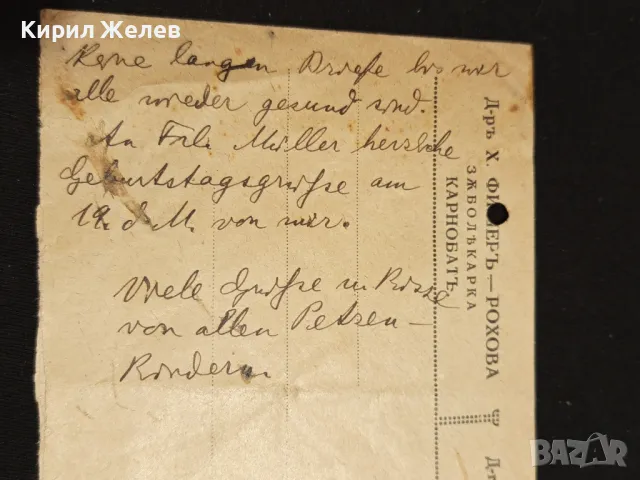 Кирил Желев
Keine langen Briefe bis wir
alle wieder gesund sind.
An Frl. Müller herzliche
Geburtstagsgrüsse am
19. d. M. von mir.
Viele Grüsse u Küsse
von allen Petzen-
Kindern
Д-ръ Х. ФИШЕРЪ — РОХОВА
ЗѪБОЛѢКАРКА
КАРНОБАТЪ
BAZAR